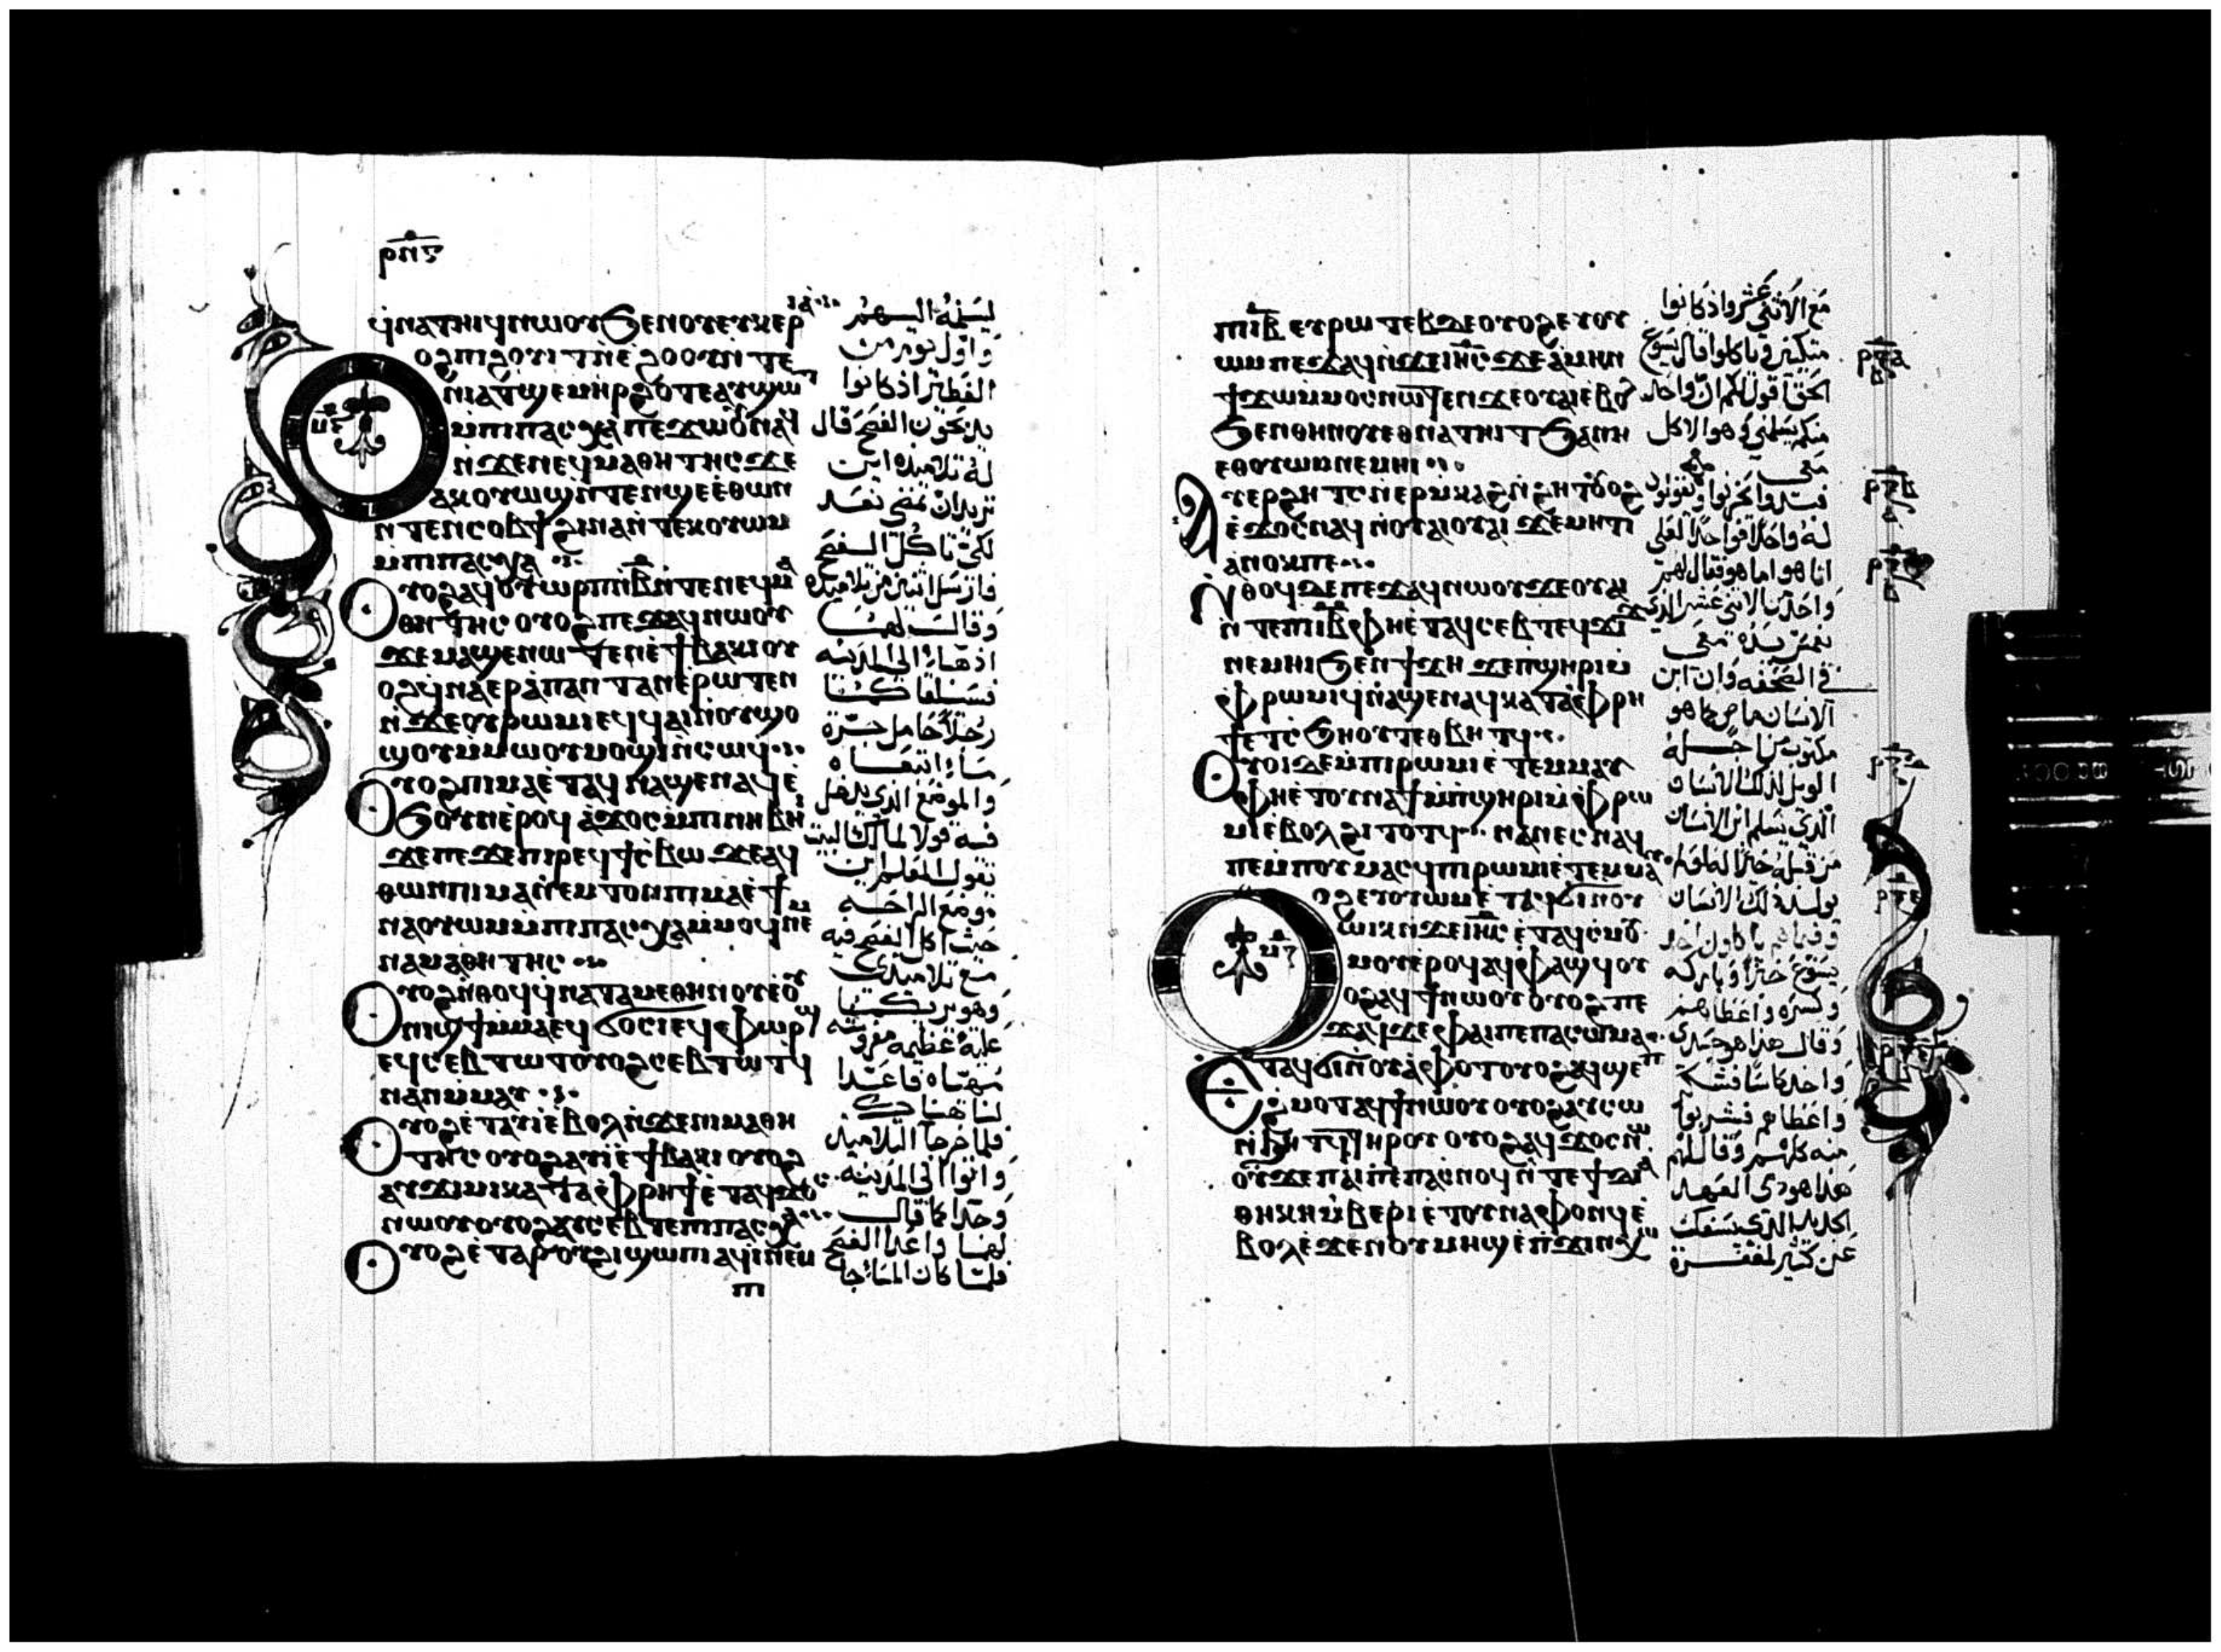 ⲣⲛⲋ
ϥⲛⲁⲧⲏⲓϥ ⲛⲱⲟⲩ ϧⲉⲛ ⲟⲩⲉⲩⲕⲉⲣⲓⲁ
ⲟϩ ⲡⲓϩⲟⲩⲓⲧ ⲛⲉϩⲟⲟⲩ ⲛⲧⲉ
ⲛⲓⲁⲧϣⲉⲙⲏⲣ ϩⲟⲧⲉ ⲁⲩϣⲱⲧ
ⲙⲡⲓⲡⲁⲥⲭⲁ ⲡⲉϫⲱⲟⲩ ⲛⲁϥ
ⲛϫⲉ ⲛⲉϥⲙⲁⲑⲏⲧⲏⲥ ϫⲉ
ⲁⲕⲟⲩⲱϣ ⲛⲧⲉⲛϣⲉ ⲉⲑⲱⲛ
ⲛⲧⲉⲛⲥⲟⲃϯ ϩⲓⲛⲁ ⲛⲧⲉⲕⲟⲩⲱⲙ
ⲙⲡⲓⲡⲁⲥⲭⲁ
ⲟⲩⲟϩ ⲁϥⲟⲩⲱⲣⲡ ⲛⲃ ⲛⲧⲉ ⲛⲉϥⲙⲁ
ⲑⲏⲧⲏⲥ ⲟⲩⲟϩ ⲡⲉϫⲁϥ ⲛⲱⲟⲩ
ϫⲉ ⲙⲁϣⲉⲛⲱⲧⲉⲛ ⲉϯⲃⲁⲕⲓ ⲟⲩ
ⲟϩ ϥⲛⲁⲉⲣⲁⲡⲁⲛⲧⲁⲛ ⲉⲣⲱⲧⲉⲛ
ⲛϫⲉ ⲟⲩⲣⲱⲙⲓ ⲉϥϥⲁⲓ ⲛⲟⲩϣⲟ
ϣⲟⲩ ⲙⲙⲱⲟⲩ ⲙⲟϣⲓ ⲛⲥⲱϥ
ⲟⲩⲟϩ ⲡⲓⲙⲁ ⲉⲧⲁϥⲛⲁϣⲉⲛⲁϥ ⲉ
ϧⲟⲩⲛ ⲉⲣⲟϥ ⲁϫⲟⲥ ⲙⲡⲓⲛⲏⲃⲏⲓ
ϫⲉ ⲡⲉϫⲉ ⲡⲓⲣⲉϥϯⲥⲃⲱ ϫⲉ ⲁϥ
ⲑⲱⲛ ⲡⲓⲙⲁⲛⲉⲙⲧⲟⲛ ⲡⲓⲙⲁ ⲉϯ
ⲛⲁⲟⲩⲱⲙ ⲙⲡⲓⲡⲁⲥⲭⲁ ⲙⲙⲟϥ ⲛⲉⲙ
ⲛⲁⲙⲁⲑⲏⲧⲏⲥ
ⲟⲩⲟϩ ⲛⲑⲟϥ ϥⲛⲁⲧⲁⲙⲉ ⲑⲏⲛⲟⲩ ⲉⲟⲩ
ⲛⲓϣϯ ⲙⲙⲁ ⲉϥϭⲟⲥⲓ ⲉϥⲫⲱⲣϣ
ⲉϥⲥⲉⲃⲧⲱⲧ ⲟⲩⲟϩ ⲥⲉⲃⲧⲱⲧϥ
ⲛⲁⲛ ⲙⲙⲁⲩ
ⲟⲩⲟϩ ⲉⲧⲁⲩⲓ ⲉⲃⲟⲗ ⲛϫⲉ ⲡⲓⲙⲁⲑⲏ
ⲧⲏⲥ ⲟⲩⲟϩ ⲁⲩⲓ ⲉϯⲃⲁⲕⲓ ⲟⲩⲟϩ
ⲁⲩϫⲓⲙⲓ ⲕⲁⲧⲁ ⲫⲣⲏϯ ⲉⲧⲁϥϫⲟⲥ
ⲛⲱⲟⲩ ⲟⲩⲟϩ ⲁⲩⲥⲉⲃⲧⲉ ⲡⲓⲡⲁⲥⲭⲁ
ⲟⲩⲟϩ ⲉⲧⲁ ⲣⲟⲩϩⲓ ϣⲱⲡⲓ ⲁϥⲓ ⲛⲉⲙ
ⲡⲓ
ليسلمه اليهم
واول يوم من
الفطير اذ كانوا
يذبحون الفصح قال
له تلاميذه اين
تريد ان نمضي نعد
لكي تاكل الفصح
فارسل اثنين من تلاميذه
وقال لهما
اذهبا الى المدينه
فسيلقاكما
رجلا حامل جرة
ماء اتبعاه
والموضع الذي يدخل
فيه قولا لمالك البيت
يقول المعلم اين
موضع الراحه
حيث اكل الفصح فيه
مع تلاميذي
وهو يريكما
عليه عظيمه مفروشه
مهياه فاعدا
لنا هناك
فلما خرجا التلاميذ
واتوا الى المدينه
وجدا كما قال
لهما واعدا الفصح
فلما كان المساء جا
ⲡⲓⲓⲃ ⲉⲩⲣⲱⲧⲉⲃ ⲇⲉ ⲟⲩⲟϩ ⲉⲩⲟⲩ
ⲱⲙ ⲡⲉϫⲁϥ ⲛϫⲉ ⲓⲏⲥ ϫⲉ ⲁⲙⲏⲛ
ϯϫⲱ ⲙⲙⲟⲥ ⲛⲱⲧⲉⲛ ϫⲉ ⲟⲩⲁⲓ ⲉⲃⲟⲗ
ϧⲉⲛ ⲑⲏⲛⲟⲩ ⲉⲑⲛⲁⲧⲏⲓⲧ ⲫⲏ
ⲉⲑⲟⲩⲱⲙ ⲛⲉⲙⲏⲓ
ⲁⲩⲉⲣϩⲏⲧⲥ ⲛⲉⲣⲙⲕⲁϩ ⲛϩⲏⲧ ⲟⲩⲟϩ
ⲉϫⲟⲥ ⲛⲁϥ ⲛⲟⲩⲁⲓ ⲟⲩⲁⲓ ϫⲉ ⲙⲏⲧⲓ
ⲁⲛⲟⲕ ⲡⲉ
ⲛⲑⲟϥ ⲇⲉ ⲡⲉϫⲁϥ ⲛⲱⲟⲩ ϫⲉ ⲟⲩⲁⲓ
ⲛⲧⲉ ⲡⲓⲓⲃ ⲫⲏ ⲉⲧⲁϥⲥⲉⲃ ⲧⲉϥϫⲓϫ
ⲛⲉⲙⲏⲓ ϧⲉⲛ ϯϫⲏ ϫⲉ ⲡϣⲏⲣⲓ ⲙ
ⲫⲣⲱⲙⲓ ϥⲛⲁϣⲉⲛⲁϥ ⲕⲁⲧⲁ ⲫⲣⲏ
ϯ ⲉⲧⲥϧⲏⲟⲩⲧ ⲉⲑⲃⲏⲧϥ
ⲟⲩⲟⲓ ⲇⲉ ⲙⲡⲓⲣⲱⲙⲓ ⲉⲧⲉⲙⲙⲁⲩ
ⲫⲏ ⲉⲧⲟⲩⲛⲁϯ ⲙⲡϣⲏⲣⲓ ⲙⲫⲣⲱ
ⲙⲓ ⲉⲃⲟⲗ ϩⲓⲧⲟⲧϥ ⲛⲁⲛⲉⲥ ⲛⲁϥ
ⲡⲉ ⲙⲡⲟⲩⲙⲁⲥϥ ⲡⲓⲣⲱⲙⲓ ⲉⲧⲉⲙⲙⲁⲩ
ⲟⲩⲟϩ ⲉⲩⲟⲩⲱⲙ ⲉⲧⲁϥϭⲓ ⲛⲟⲩ
ⲱⲓⲕ ⲛϫⲉ ⲓⲏⲥ ⲉⲧⲁϥⲥⲙⲟⲩ
ⲉⲣⲟϥ ⲁϥⲫⲁϣϥ ⲟⲩ
ⲟϩ ⲁϥϯ ⲛⲱⲟⲩ ⲟⲩⲟϩ ⲡⲉ
ϫⲁϥ ϫⲉ ⲫⲁⲓ ⲡⲉ ⲡⲁⲥⲱⲙⲁ
ⲉⲧⲁϥϭⲓ ⲛⲟⲩⲁⲫⲟⲧ ⲟⲩⲟϩ ⲁϥϣⲉⲡ
ϩⲙⲟⲧ ⲁϥϯ ⲛⲱⲟⲩ ⲟⲩⲟϩ ⲁⲩⲥⲱ
ⲛϧⲏⲧϥ ⲧⲏⲣⲟⲩ ⲟⲩⲟϩ ⲁϥϫⲟⲥ ⲛⲱ
ⲟⲩ ϫⲉ ⲫⲁⲓ ⲡⲉ ⲡⲁⲥⲛⲟϥ ⲛⲧⲉ ϯⲇⲓⲁ
ⲑⲏⲕⲏ ⲙⲃⲉⲣⲓ ⲉⲧⲟⲩⲛⲁⲫⲟⲛϥ ⲉ
ⲃⲟⲗ ⲉϫⲉⲛ ⲟⲩⲙⲏϣ ⲉⲡϫⲓⲛⲭⲱ
مع الاثني عشر واذ كانوا
متكئين ياكلوا قال يسوع
الحق اقول لكم ان واحد
منكم يسلمني وهو الاكل
معي
فبدوا يحزنوا ويقولوا
له واحدا فواحدا لعلي
انا هو اما هو فقال لهم
واحد من الاثني عشر الذي
يغمس يده معي
في الصحفه وان ابن
الانسان ماض كما هو
مكتوب من اجله
الويل لذلك الانسان
الذي يسلم ابن الانسان
من قبله خيرا له لو لم
يولد ذلك الانسان
وفيما هم ياكلون اخذ
يسوع خبزا وباركه
وكسره واعطاهم
وقال هذا هو جسدي
واخذ كاسا فشكر
واعطاهم فشربوا
منه كلهم وقال لهم
هذا هو دمي العهد
الجديد الذي يسفك
عن كثير لمغفرة